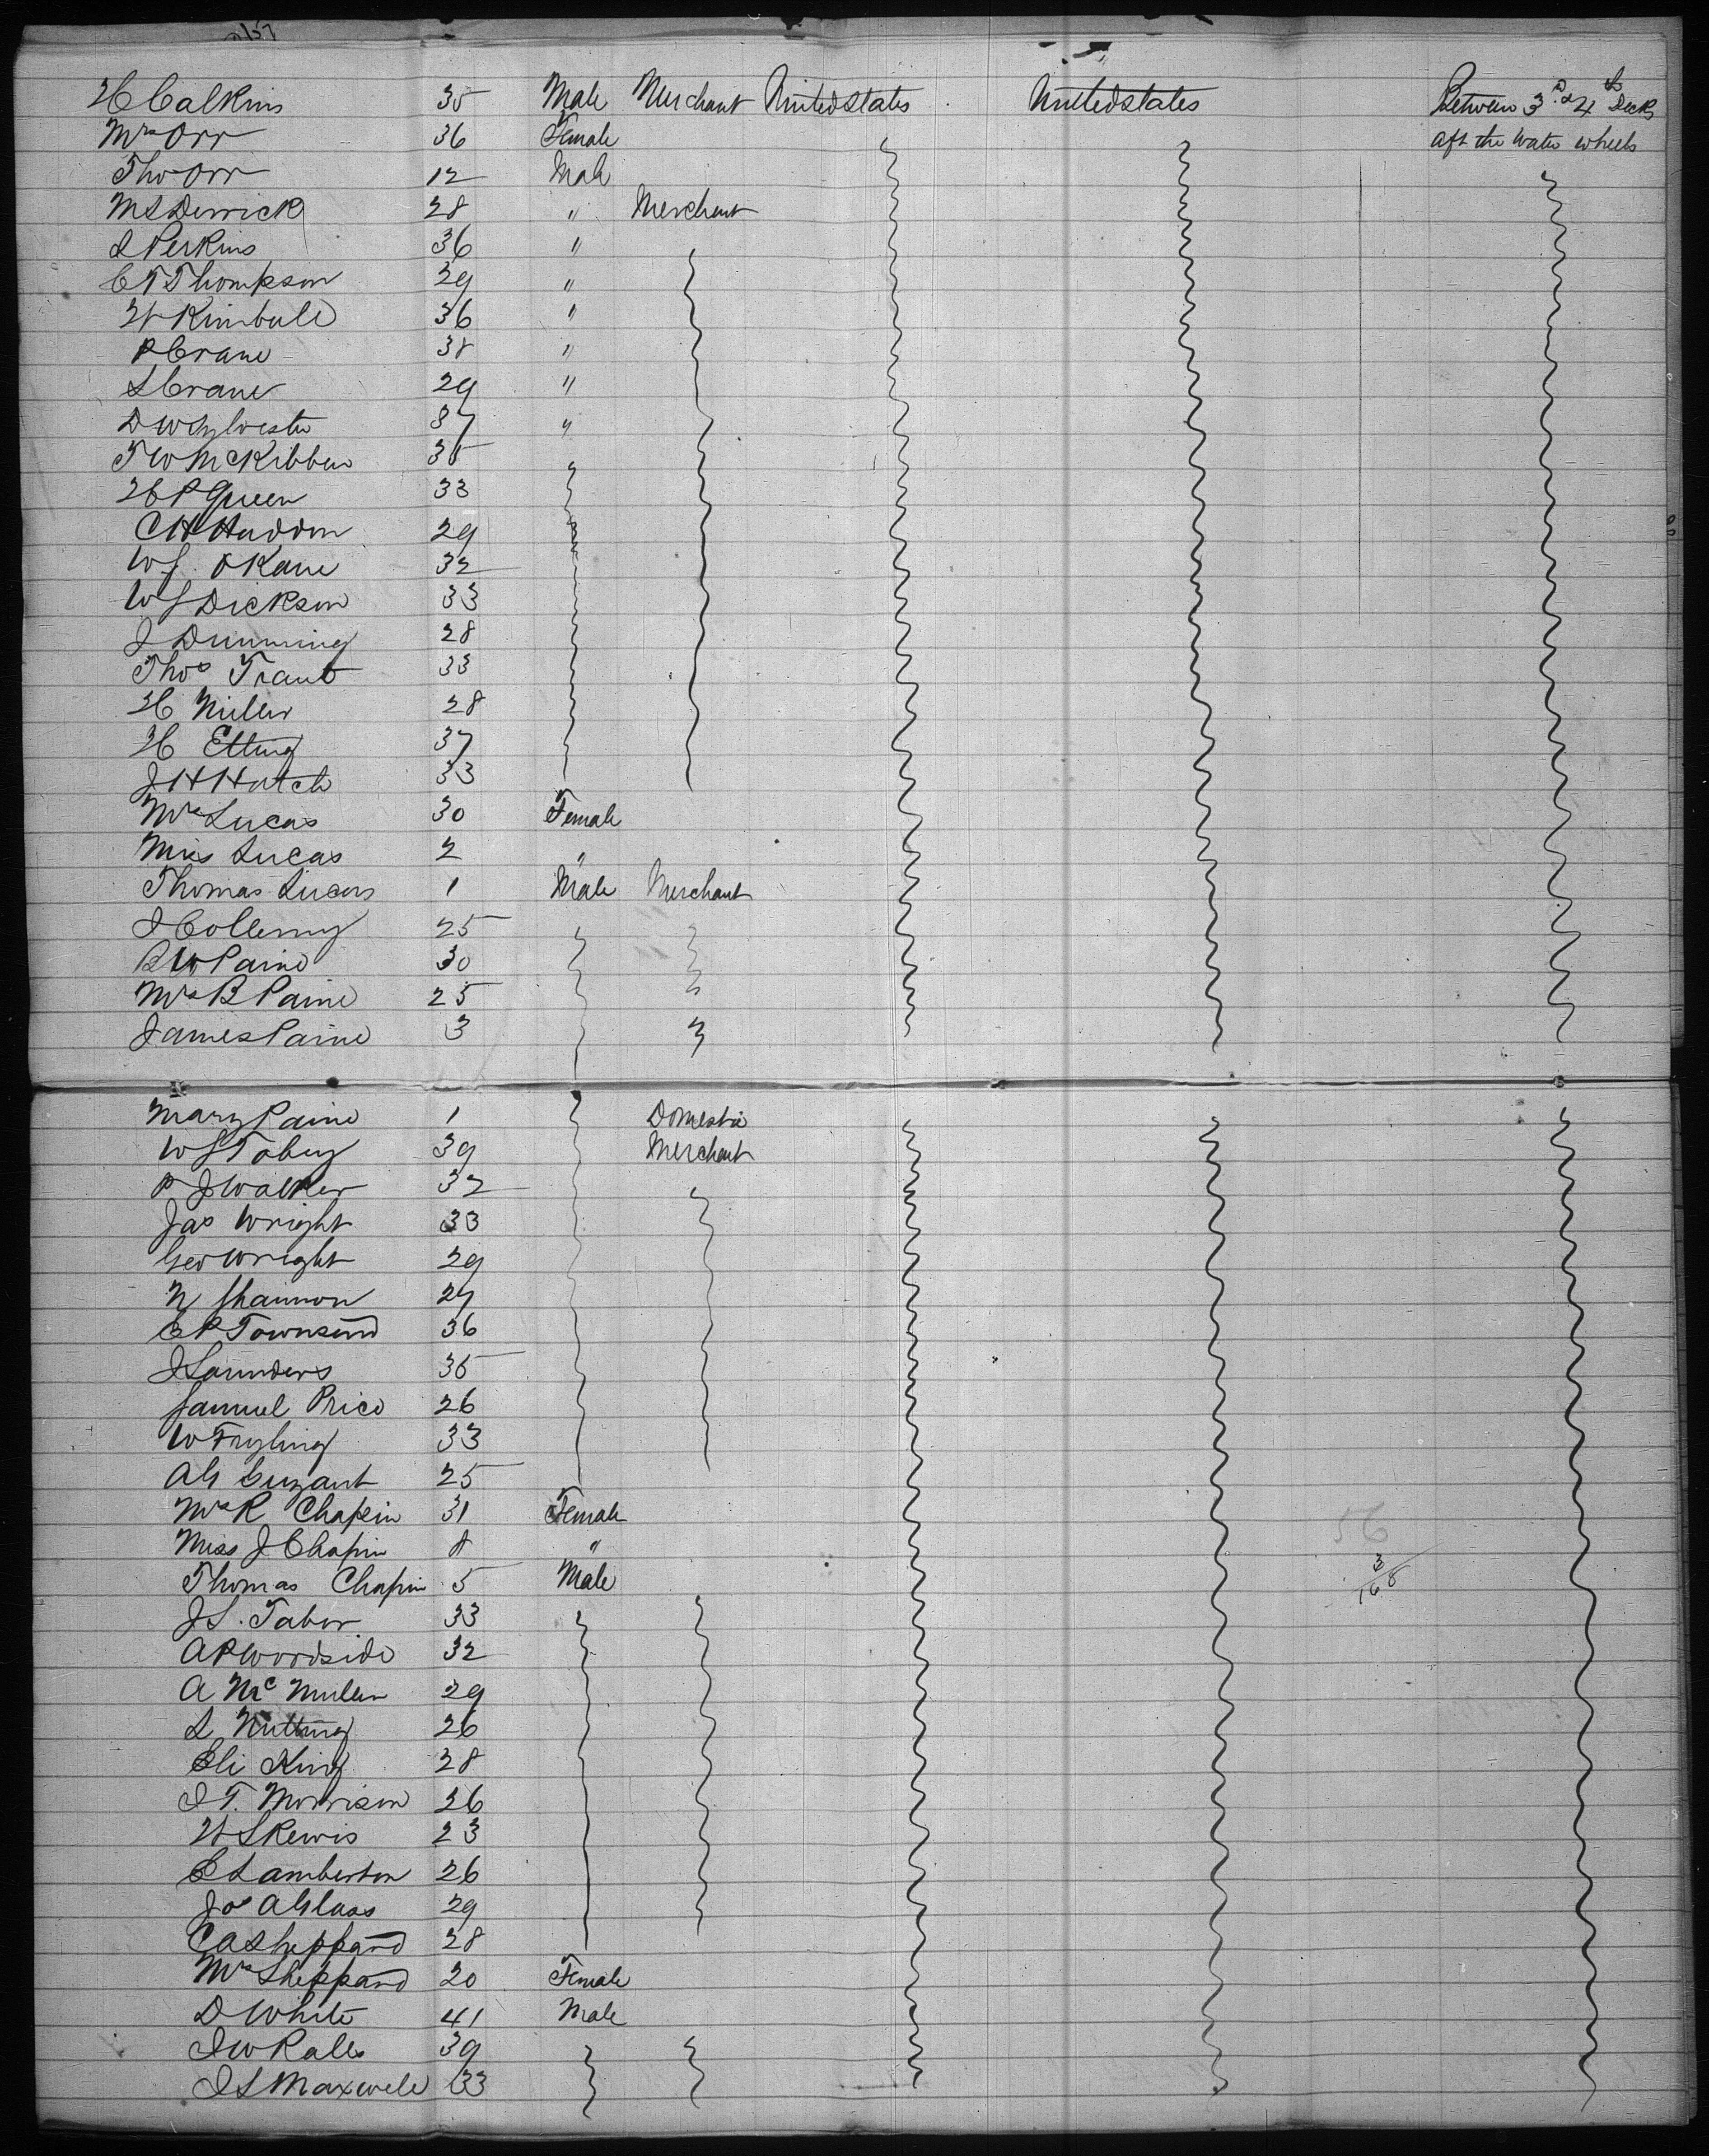 H Calkins 35 Male Merchant United States United States Between 3rd & 4th Decks
Mrs Orr 36 Female aft the Water wheels
Tho Orr 12 Male
M S Derrick 28 " Merchant
L Perkins 36 "
C T Thompson 29 "
H Kimball 36 "
P Crane 38 "
S Crane 29 "
D W Sylvester 37 "
T W McKibben 35
H P Green 33
C H Haddon 29
W J. O Kane 32
W J Dickson 33
J Dunning 28
Thos Traub 33
H Miller 28
H Etting 37
J H Hatch 33
Mrs Lucas 30 Female
Miss Lucas 2 "
Thomas Lucas 1 Male Merchant
J Collemy 25
B W Paine 30
Mrs B Paine 25
James Paine 3
Mary Paine 1 Domestic
W S Tobey 39 Merchant
P J Walker 32
Jas Wright 33
Geo Wright 29
N Shannon 27
E P Townsend 36
J Saunders 35
Samuel Price 26
W Fryling 33
A G 25
Mrs R Chapin 31 Female
Miss J Chapin 8 "
Thomas Chapin 5 Male
J S. Tabor 33
A P Woodside 32
A Mc Mullen 29
L Nutting 26
Eli King 28
J T. Morrison 26
H Skewis 23
E Lamberton 26
Jos A Glass 29
C A Sheppard 28
Mrs Sheppard 20 Female
D White 41 Male
J W Rales 39
J S Maxwell 33